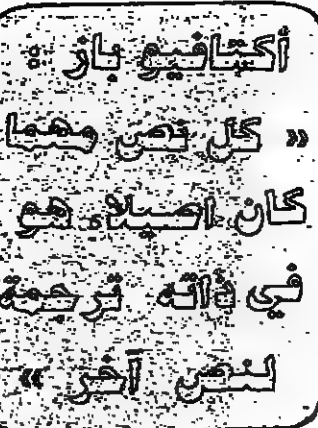 أكتافيو باز :
« كل نص مهما
كان اصيلا، هو
في ذاته ترجمة
لنص آخر »